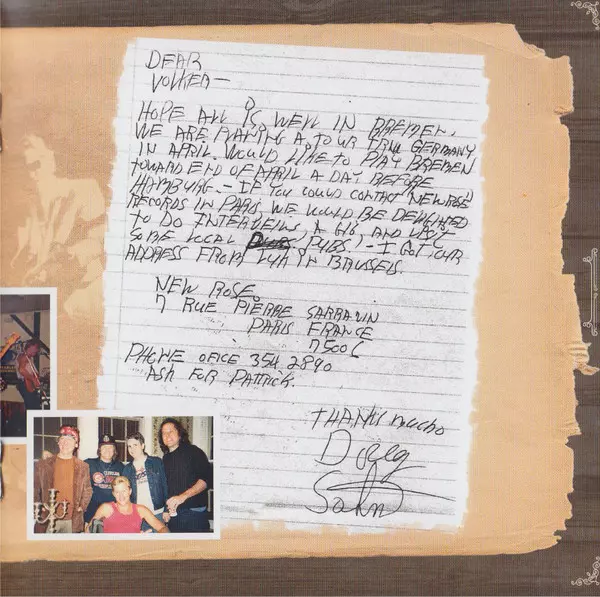 DEAR
VOLKER—
HOPE ALL IS WELL IN BREMEN.
WE ARE PLAYING A TOUR THRU GERMANY
IN APRIL. WOULD LIKE TO PLAY BREMEN
TOWARD END OF APRIL A DAY BEFORE
HAMBURG. — IF YOU COULD CONTACT NEW ROSE
RECORDS IN PARIS WE WOULD BE DELIGHTED
TO DO INTERVIEWS, A GIG AND VISIT
SOME LOCAL PUBS! — I GOT YOUR
ADDRESS FROM IN BRUSSELS.
NEW ROSE
7 RUE PIERRE SARRAZIN
PARIS FRANCE
75006
PHONE OFFICE 354 2890
ASK FOR PATRICK
THANKS MUCHO
Doug
Sahm